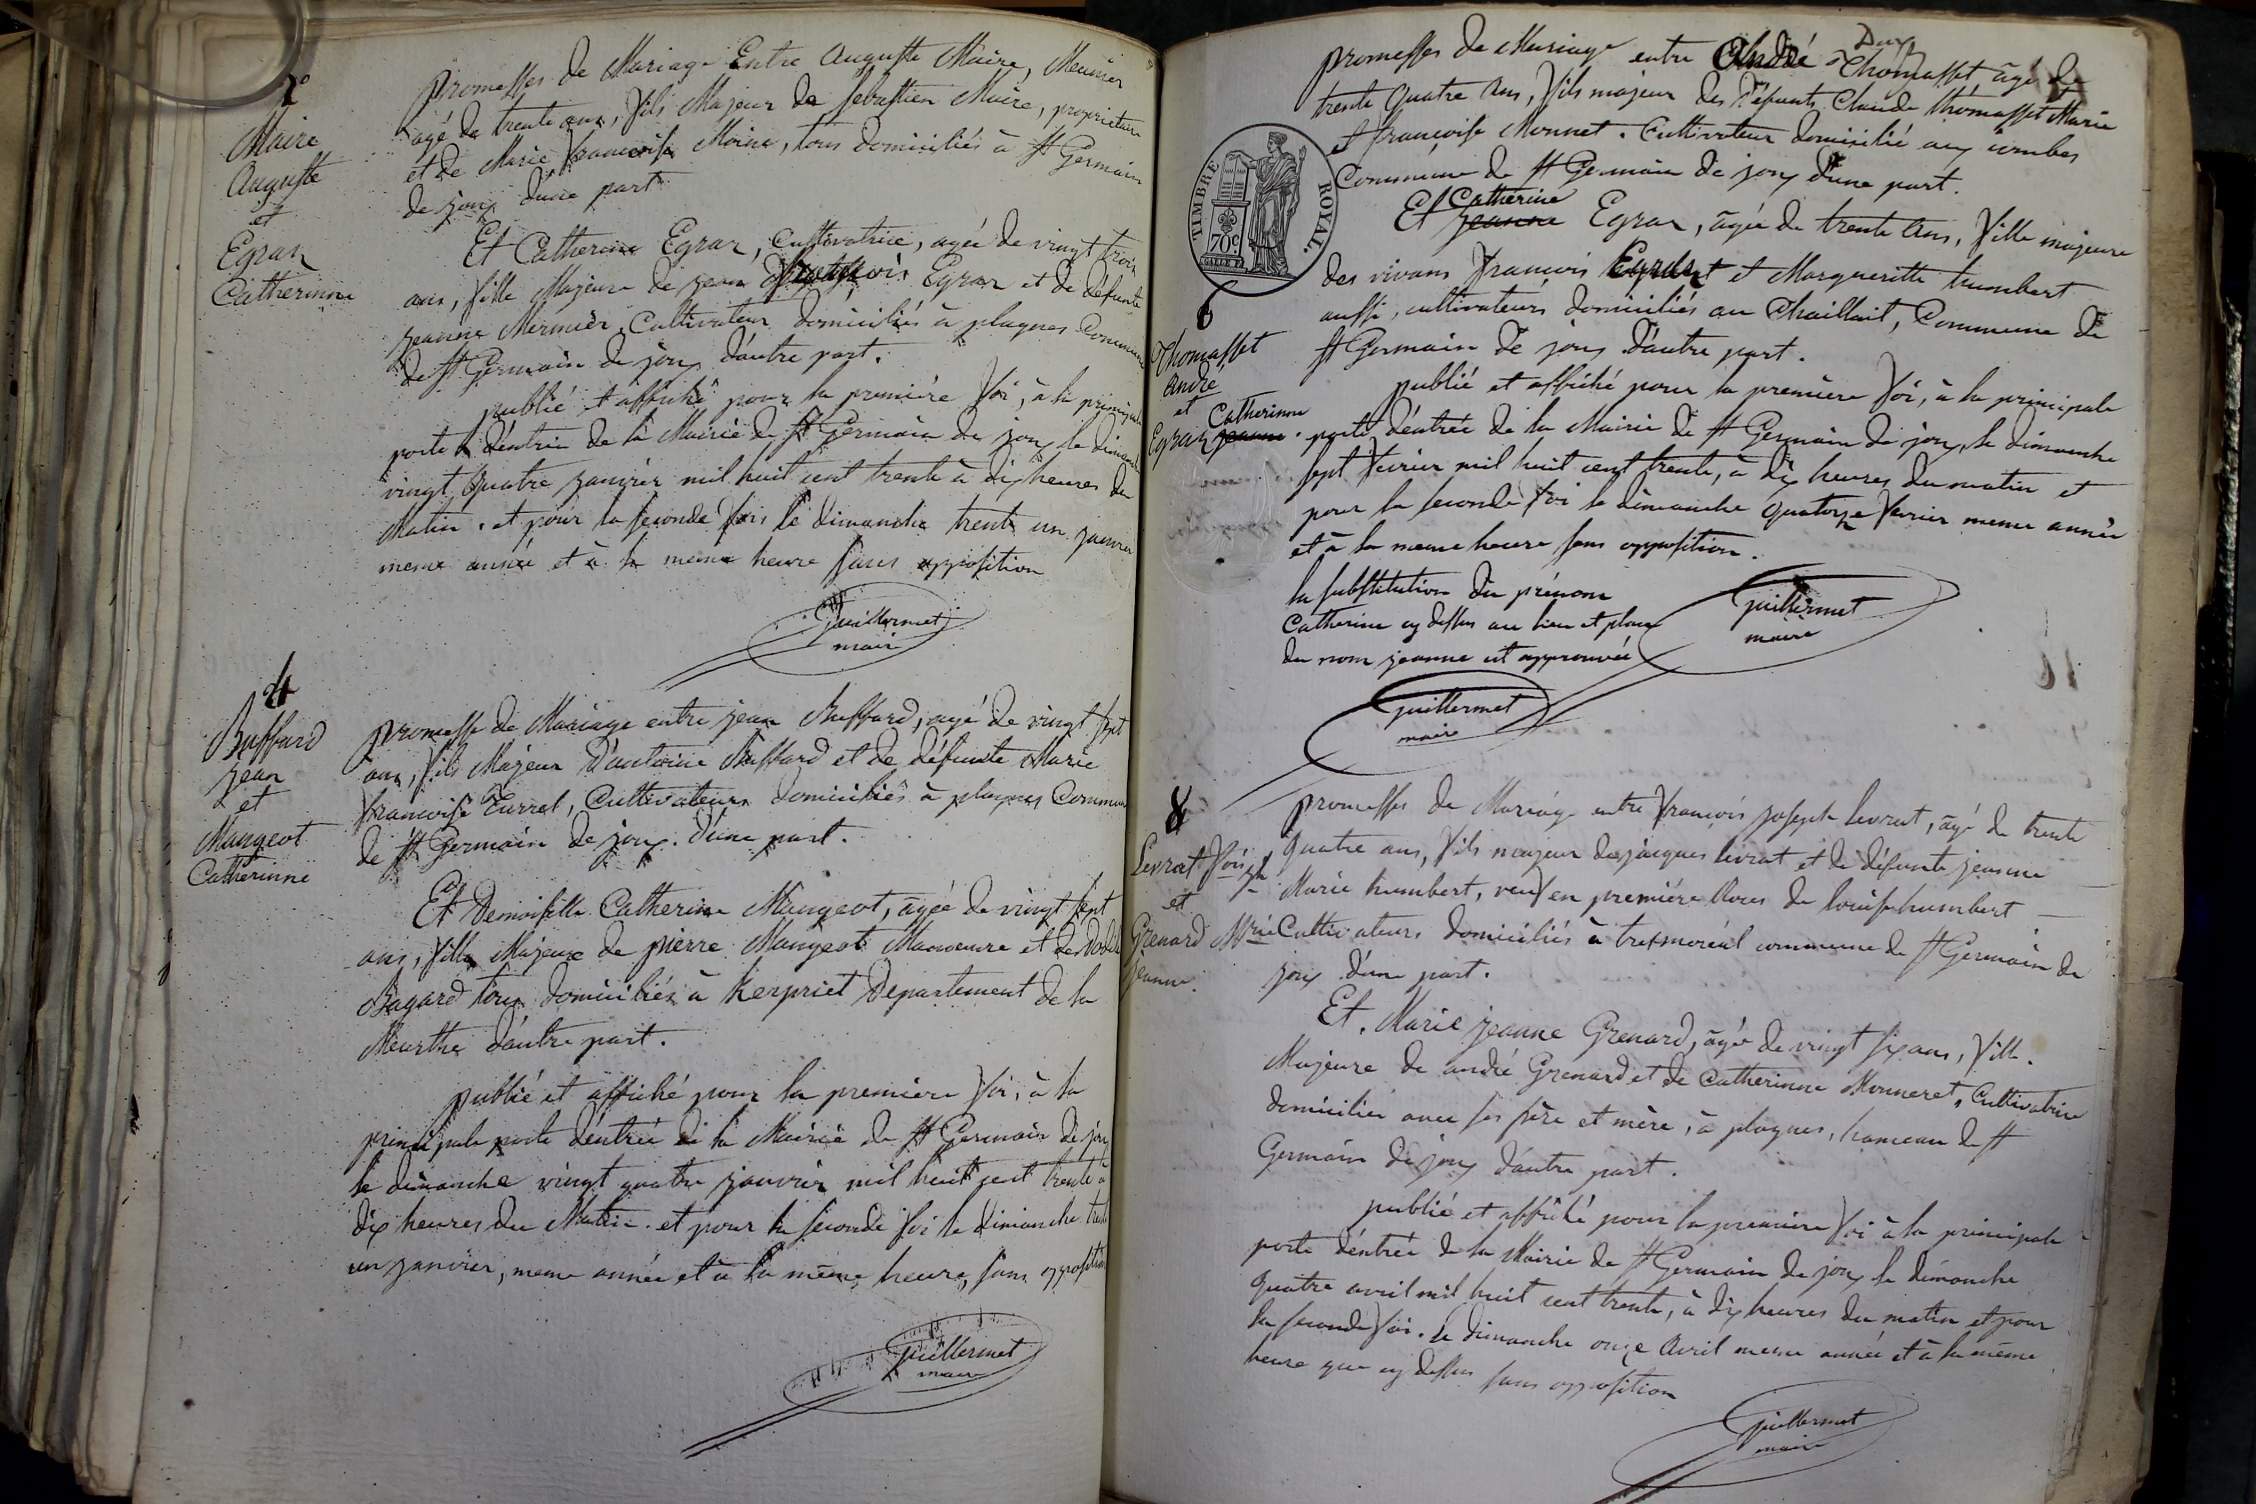 2°
Maire
Auguste
et
Egraz
Catherinne
promesses de Mariage Entre Auguste Maire, Meunier
agé de trente ans, fils Majeur de Sebastien Maire, propriétaire
et de Marie francoise Moine, tous domiciliés à St Germain
de joux d'une part
Et Catherine Egraz, Cultivatrice, agée de vingt trois
ans, fille Majeure de jean françois Egraz et de défunte
jeanne Mermier, Cultivateur domiciliés à plagnes Commune
de St Germain de joux d'autre part.
publié et affiché pour la première foi, à la principale
porte d'entrée de la Mairie de St Germain de joux le dimanche
vingt quatre janvier mil huit cent trente à dix heures du
Matin. et pour la seconde fois le dimanche trente un janvier
meme année et à la meme heure sans opposition
Guillermet
maire
4
Buffard
jean
et
Mangeot
Catherinne
promesse de Mariage entre jean Buffard, agé de vingt sept
ans, fils Majeur d'antoine Buffard et de défunte Marie
francoise Turrel, Cultivateurs domiciliés à plagnes Commune
de St Germain de joux. d'une part.
Et Demoiselle Catherine Mangeot, agée de vingt sept
ans, fille Majeure de pierre Mangeot Manoeuvre et de
Bagard tous domiciliés à Kerpriet Departement de la
Meurthe d'autre part.
publié et affiché pour la premiere foi, à la
principale porte d'entrée de la Mairie de St Germain de joux
le dimanche vingt quatre janvier mil huit cent trente à
dix heures du Matin. et pour la seconde foi le dimanche trente
un janvier, meme année et à la même heure, sans opposition
Guillermet
maire
promesses de Mariage entre André Thomasset agé de
trente quatre ans, fils majeur des défunts Claude thomasset Marie
et francoise Monnet. Cultivateur domicilié aux combes
Commune de St Germain de joux d'une part.
TIMBRE ROYAL.
70c
Catherine
Et jeanne Egraz, agée de trente ans, fille majeure
des vivans francois Egraz et Marguerite humbert
aussi, cultivateurs domiciliés au Chaillait, Commune de
St Germain de joux d'autre part.
6
Thomasset
andré
et
Catherinne
Egraz jeanne.
publié et affiché pour la première foi, à la principale
porte d'entrée de la Mairie de St Germain de joux, le dimanche
sept fevrier mil huit cent trente, à dix heures du matin et
pour la seconde foi le dimanche quatorze fevrier meme année
et à la meme heure sans opposition.
la substitution du prénom
Catherine cy dessus au lieu et place
du nom jeanne est approuvée
Guillermet
maire
Guillermet
maire
8
Levrat fois jh
et
Grenard Mrie
jeanne.
promesses de Mariage entre françois joseph levrat, agé de trente
quatre ans, fils majeur de jacques levrat et de défunte jeanne
Marie humbert, veuf en première Noces de louise humbert
Cultivateurs domiciliés à tresmoréal commune de St Germain de
joux d'une part.
Et. Marie jeanne Grenard, agée de vingt six ans, fille.
Majeure de andré Grenard et de Catherinne Monneret, Cultivatrice
domiciliée avec ses père et mère, à plagnes, hameau de St
Germain de joux d'autre part.
publié et affiché pour la premiere foi à la principale
porte d'entrée de la Mairie de St Germain de joux le dimanche
quatre avril mil huit cent trente, à dix heures du matin et pour
la seconde foi. le dimanche onze avril meme année et à la même
heure que cy dessus sans opposition
Guillermet
maire